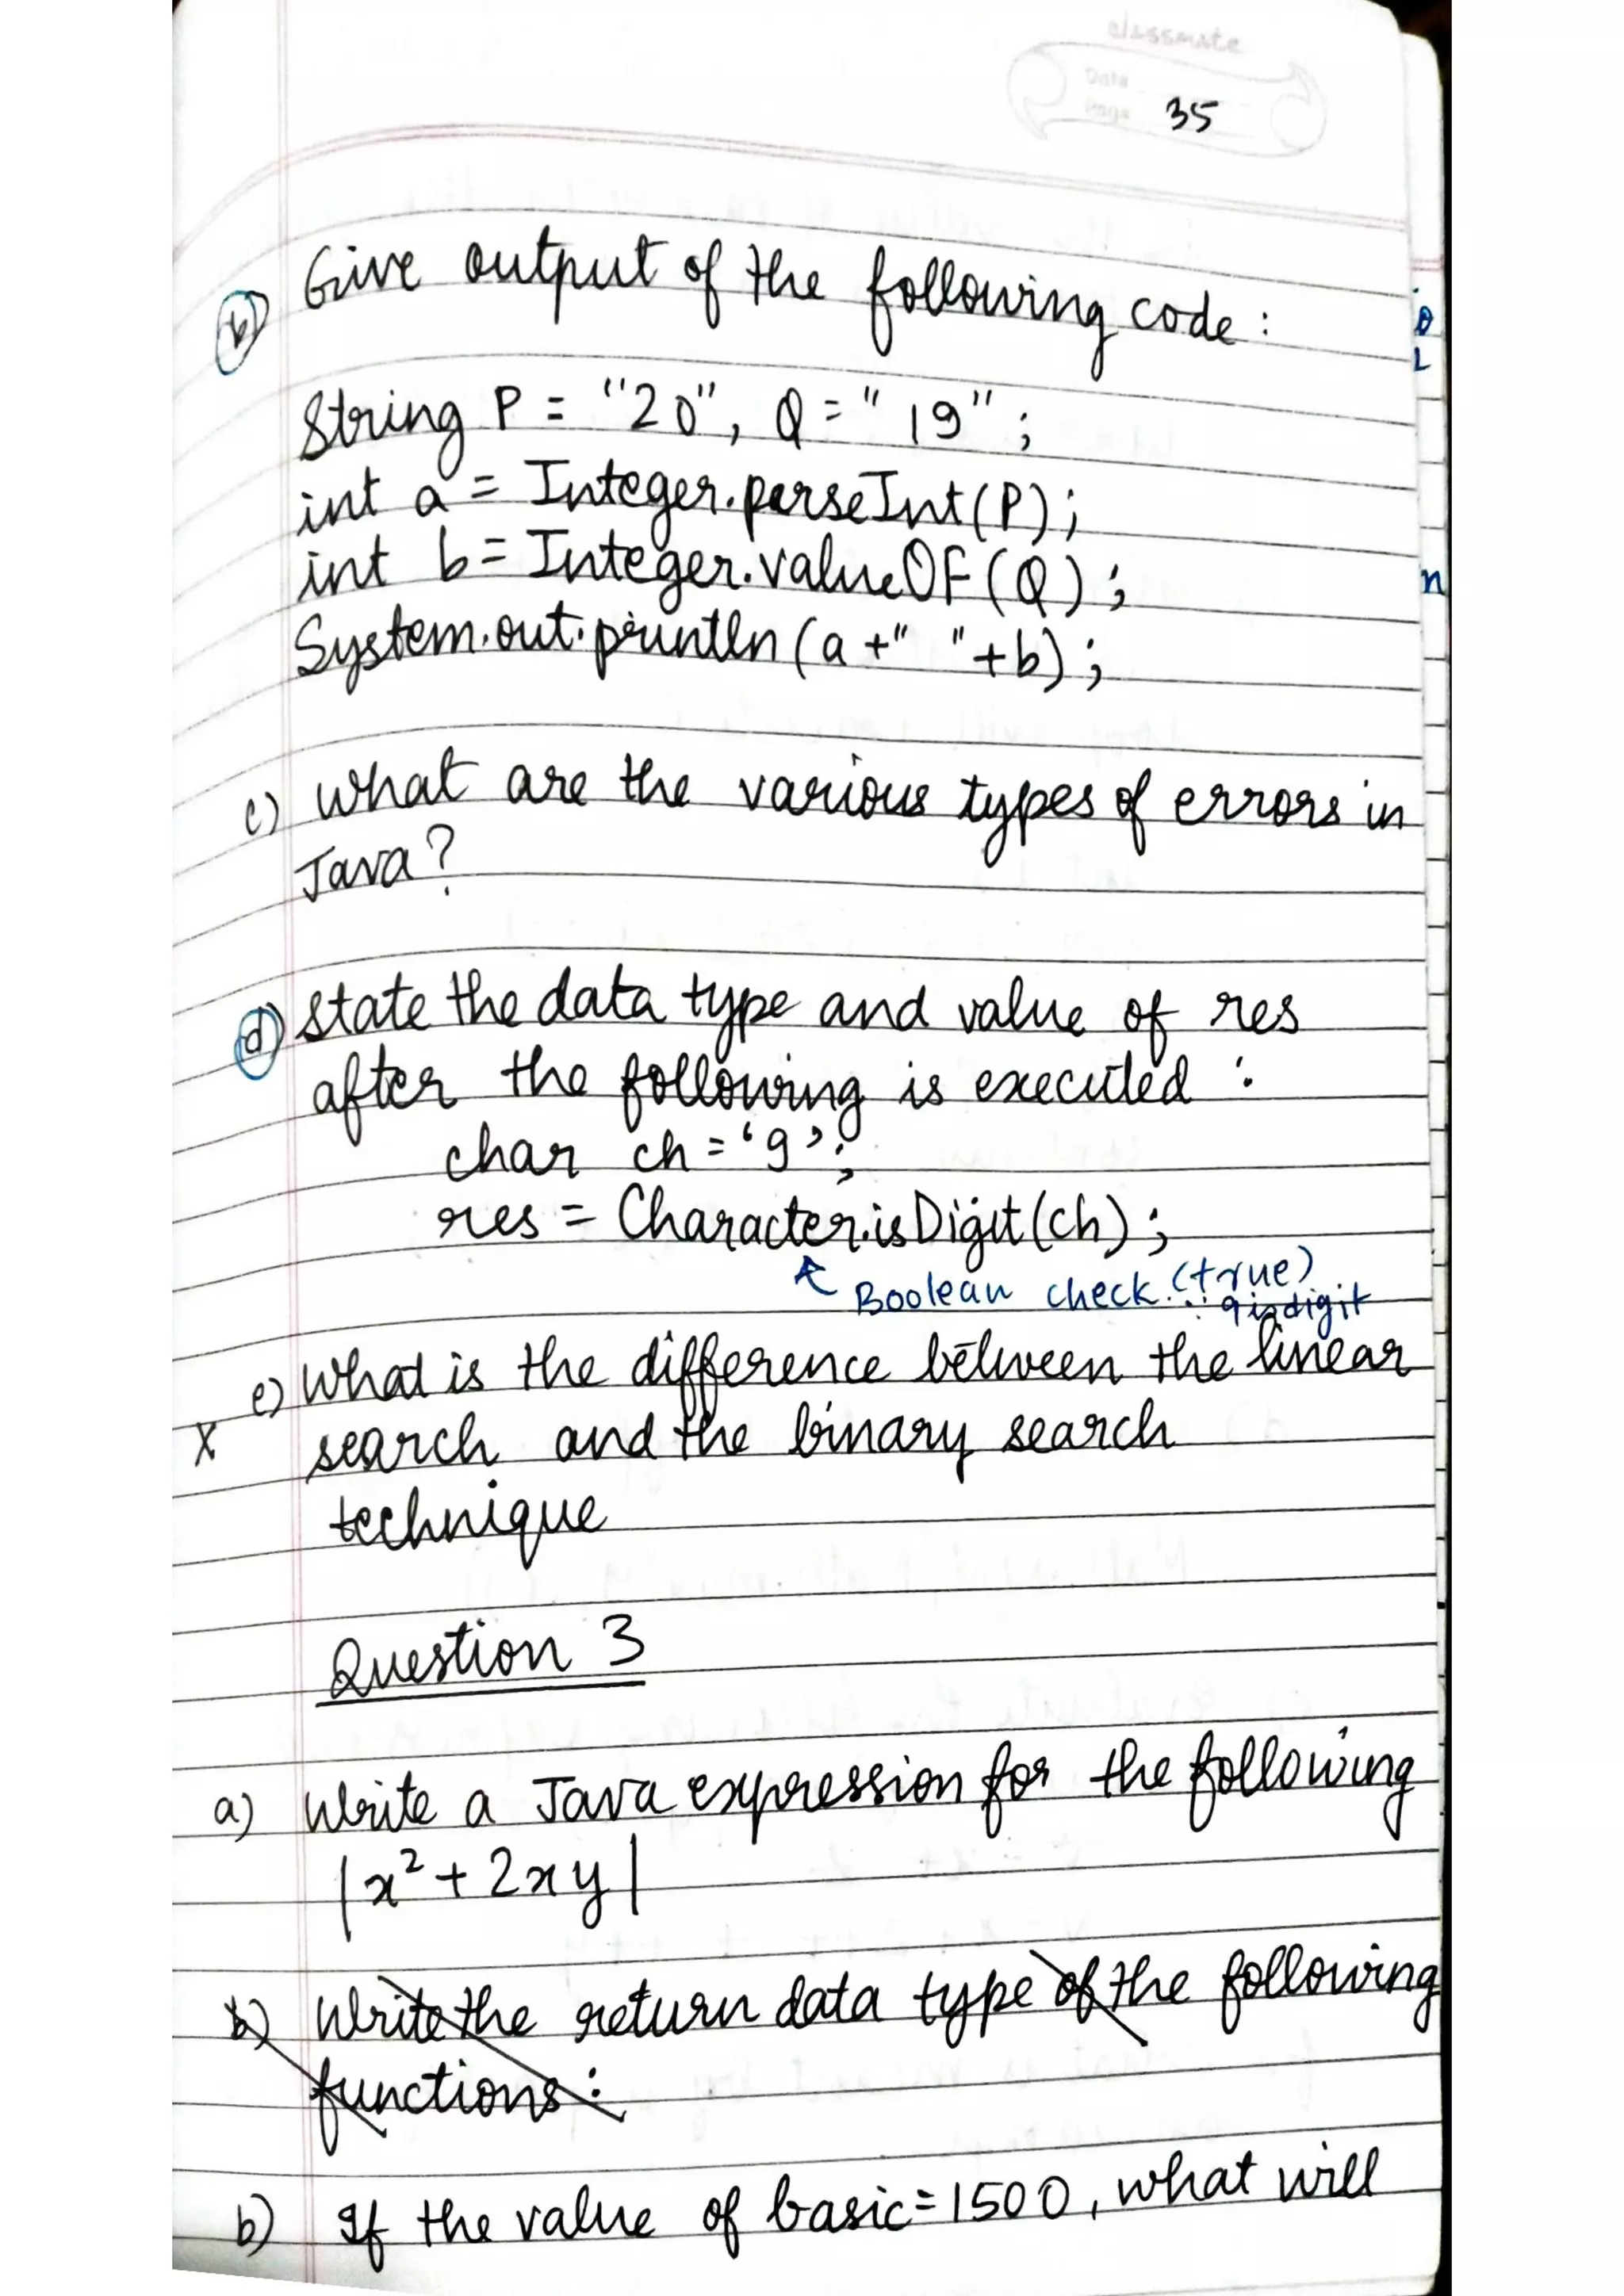 classmate
Date
Page 35
b) Give output of the following code :
String P = "20", Q = "19" ;
int a = Integer.parseInt(P) ;
int b = Integer.valueOF(Q) ;
System.out.println(a +" "+b) ;
c) What are the various types of errors in
Java ?
d) State the data type and value of res
after the following is executed :
char ch = '9' ;
res = Character.isDigit(ch) ;
Boolean check. (true)
∵ 9 is digit
e) What is the difference between the linear
X search and the binary search
technique
Question 3
a) Write a Java expression for the following
|x² + 2xy|
b) Write the return data type of the following
functions :
b) If the value of basic = 1500, what will